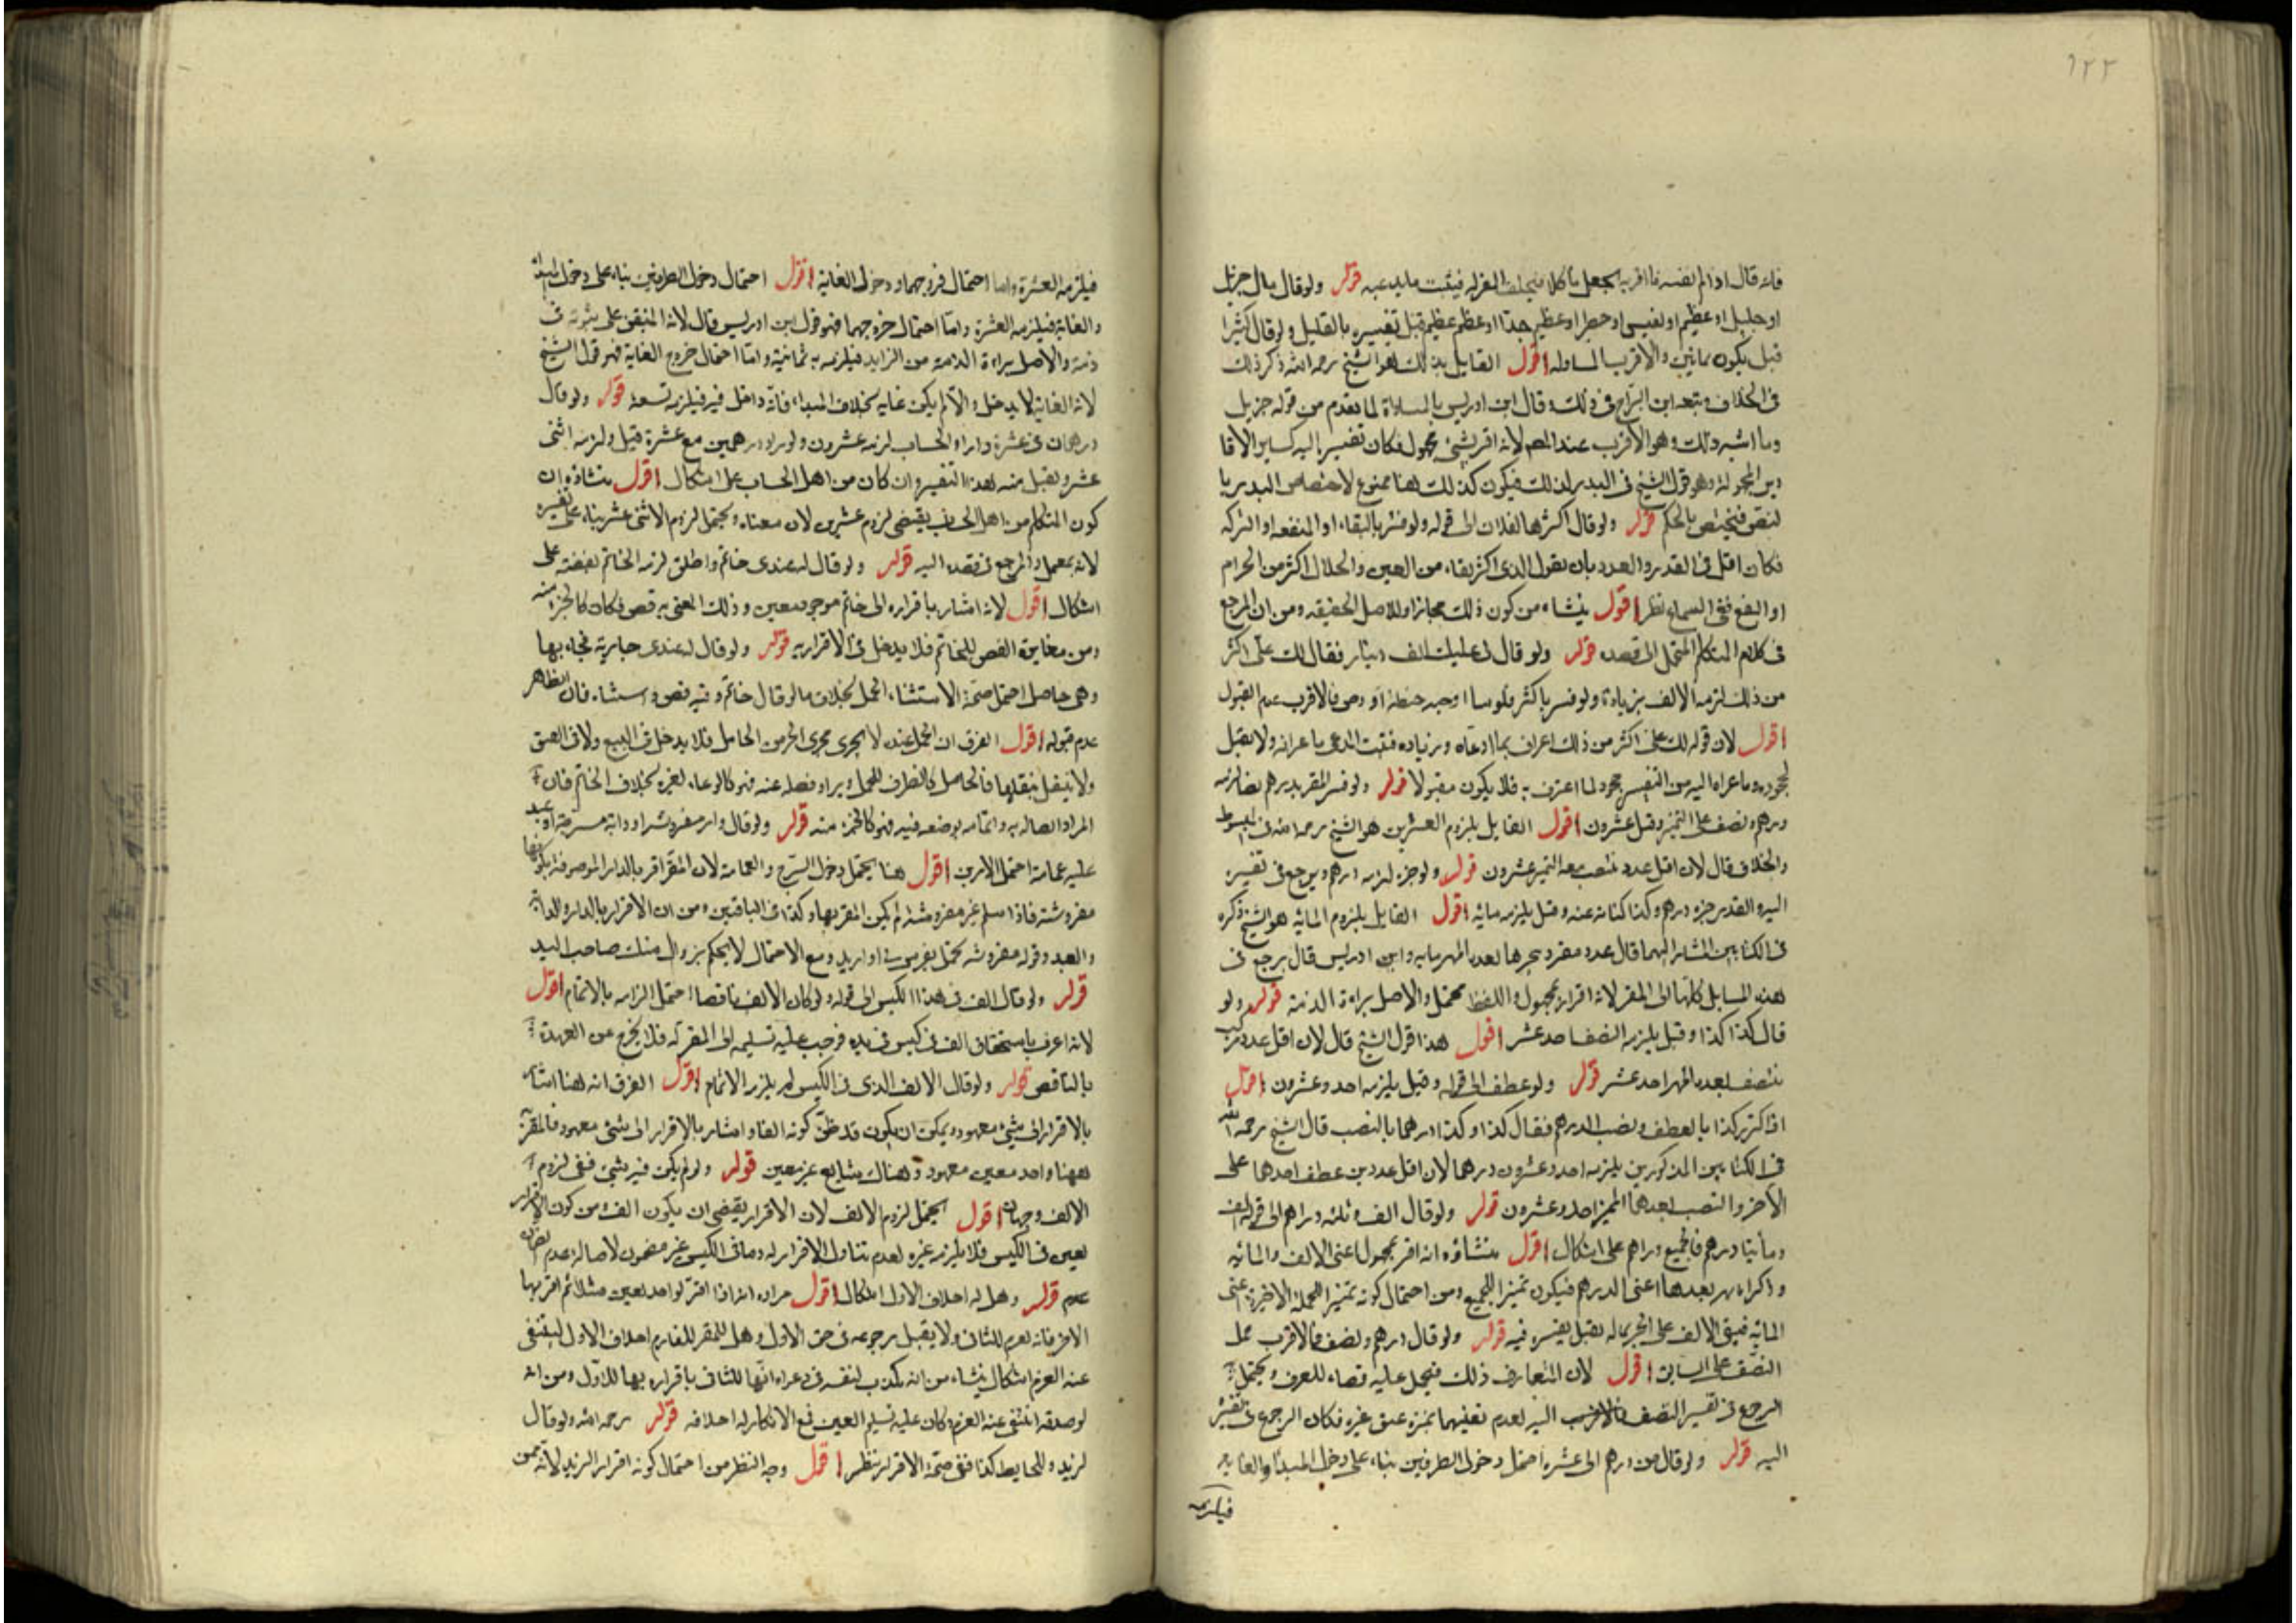 ١٢٢
فانه قال اذا لم يفسر ما اقر به يجعل ناكلا فيحلف المقر له فيثبت ما يدعيه قوله ولو قال مال جزيل
او جليل او عظيم او نفيس او خطير او عظيم جدا او عظيم عظيم قبل تفسيره بالقليل ولو قال كثيرا
قيل يكون ثمانين والاقرب المساواة اقول القايل بذلك هو الشيخ رحمه الله ذكر ذلك
فى الخلاف وتبعه ابن البراج فى ذلك وقال ابن ادريس بالمساواة لما تقدم من قوله جزيل
وما اشبه ذلك وهو الاقرب عند المص لانه اقر بشئ مجهول فكان تفسيره اليه كساير الاقا
رير المجهولة وهو قول الشيخ فى النذر كذلك فيكون كذلك هنا ممنوع لاختصاص النذر با
لنص فيختص بالحكم قوله ولو قال اكثر ما لفلان الى قوله ولو فسر بالبقاء او المنفعة او البركة
فكان اقل فى القدر والعدد بان يقول الذى اكثر بقاء من العين والحلال اكثر من الحرام
او انفع ففى السماع نظر اقول ينشاء من كون ذلك مجازا والاصل الحقيقة ومن ان المرجع
فى كلام المتكلم المحتمل الى قصده قوله ولو قال لى عليك الف دينار فقال لك على اكثر
من ذلك لزمه الالف بزيادة ولو فسر باكثر فلوسا او حبة حنطة او دخن فالاقرب عدم القبول
اقول لان قوله لك على اكثر من ذلك اعتراف بما ادعاه وزيادة فثبت المدعى باعترافه ولا يقبل
جحوده وما عزاه اليه من التفسير جحود لما اعترف به فلا يكون مقبولا قوله ولو فسر المقر بدرهم نصبا لزمه
درهم ونصف على التميز وقيل عشرون اقول القايل بلزوم العشرين هو الشيخ رحمه الله فى المبسوط
والخلاف قال لان اقل عدد ينتصب معه التميز عشرون قوله ولو جر لزمه درهم ويرجع فى تفسيره
اليه والقدر جزء درهم وكذا كناية عنه وقيل يلزمه مائة اقول القايل بلزوم المائه هو الشيخ ذكره
فى الكتابين المشار اليهما قال عدد مفرد يجر ما بعد المميز مايه وابن ادريس قال يرجع فى
هذه المسايل كلها الى المقر لانه اقرار بمجهول واللفظ محتمل والاصل براءة الذمة قوله ولو
قال كذا كذا وقيل يلزمه النصف احد عشر اقول هذا قول الشيخ قال لان اقل عدد مركب
ينتصف بعده المميز احد عشر قوله ولو عطف الى قوله وقيل يلزمه احد وعشرون اقول
اذا كرر كذا بالعطف ونصب الدرهم فقال كذا وكذا درهما بالنصب قال الشيخ رحمه الله
فى الكتابين المذكورين يلزمه احد وعشرون درهما لان اقل عددين عطف احدهما على
الاخر وانتصب بعدهما المميز احد وعشرون قوله ولو قال الف وثلثه دراهم الى قوله الف
ومأتيا درهم فالجميع دراهم على اشكال اقول منشاؤه انه اقر بمجهول اعنى الالف والمائه
وذكر بعدهما اعنى الدرهم فيكون تميزا للجميع ومن احتمال كونه تميزا للجملة الاخيرة اعنى
المائه فيبقى الالف على اجماله يقبل تفسيره فيه قوله ولو قال درهم ونصف فالاقرب حمل
النصف على السابق اقول لان المتعارف ذلك فيحمل عليه قضاء للعرف ويحتمل
الرجوع فى تفسير النصف اليه لعدم تعينهما تميزه عن غيره فكان الرجوع فى تفسيره
اليه قوله ولو قال من درهم الى عشرة احتمل دخول الطرفين بناء على دخول المبدأ والغايه
فيلزمه
فيلزمه العشرة واما احتمال خروجهما ودخول الغاية اقول احتمال دخول الطرفين بناء على دخول المبدأ
والغاية فيلزمه العشرة واما احتمال خروجهما فهو قول ابن ادريس قال لانه المتيقن على ثبوته فى
ذمته والاصل براءة الذمة من الزايد فيلزمه به ثمانية واما احتمال خروج الغاية فهو قول الشيخ
لان الغاية لا يدخل والا لم يكن غايه بخلاف المبداء فانه داخل فيه فيلزمه تسعة قوله ولو قال
درهمان فى عشرة واراد الحساب لزمه عشرون ولو اراد درهمين مع عشرة قبل ولزمه اثنى
عشر ويقبل منه هذا التفسير وان كان من اهل الحساب على اشكال اقول منشاؤه ان
كون المتكلم من اهل الحساب يقتضى لزوم عشرين لان معناه ويحتمل لزوم الاثنى عشر بناء على تفسيره
لانه يعمل والمرجع فى قصده اليه قوله ولو قال له عندى خاتم واطلق لزمه الخاتم بفصه على
اشكال اقول لانه اشار باقراره الى خاتم موجود معين وذلك المعنى به فص فكان كالجزء منه
ومن مغايرة الفص للخاتم فلا يدخل فى الاقرار به قوله ولو قال له عندى جارية فجاء بها
وهى حامل احتمل صحة الاستثناء الحمل بخلاف ما لو قال خاتم وفيه فص واستثناه فان الظاهر
عدم قبوله اقول الفرق ان الحمل عنده لا يجرى مجرى الجزء من الحامل فلا يدخل فى البيع ولا فى العتق
ولا ينتقل بنقلها فالحامل كالظرف للحمل ويراد فصله عنه فهو كالوعاء لغيره بخلاف الخاتم فان
المراد اتصاله به وانما به بوضعه فيه فهو كالجزء منه قوله ولو قال دار مفروشة او دابة مسرجة او عبد
عليه عمامة احتمل الامرين اقول هنا يحتمل دخول السرج والعمامة لان المقر اقر بالدار الموصوفة بكونها
مفروشة فاذا سلم غير مفروشة لم يكن المقر بها وكذا فى الباقيين ومن ان الاقرار بالدار والدابة
والعبد وقوله مفروشة يحتمل بفرش لى او اريد ومع الاحتمال لا يحكم بزوال ملك صاحب اليد
قوله ولو قال الف فى هذا الكيس الى قوله ولو كان الالف ناقصا احتمل الزامه بالاتمام اقول
لانه اعترف باستحقاق الف فى كيس فى يده فوجب عليه تسليمه الى المقر له فلا يخرج عن العهدة
بالناقص قوله ولو قال الالف الذى فى الكيس لم يلزمه الاتمام اقول الفرق انه هنا اشار
بالاقرار الى شئ معهود ويمكن ان يكون قد ظن كونه الفا واشار بالاقرار الى شئ معهود فالمقر
ههنا واحد معين معهود وهناك شايع غير معين قوله ولو لم يكن فيه شئ ففى لزوم
الالف وجهان اقول يحتمل لزوم الالف لان الاقرار يقتضى ان يكون الف ومن كون الاقرار
بعين فى الكيس فلا يلزمه غيره لعدم تناول الاقرار له وما فى الكيس غير مضمون لاصالة عدم
قوله وهل له احلاف الاول اشكال اقول مراده انه اذا اقر لواحد بعين مثلا ثم اقر بها
الاخر فانه يغرم للثانى ولا يقبل رجوعه فى حق الاول وهل للمقر للغارم احلاف الاول لينتفى
عنه الغرم اشكال ينشاء من انه مكذب لنفسه فى دعواه انها للثانى باقراره بها للاول ومن انه
لو صدقه انتفى عنه الغرم وكان عليه تسليم العين فمع الانكار له احلافه قوله رحمه الله ولو قال
لزيد وللحايط كذا ففى صحة الاقرار نظر اقول وجه النظر من احتمال كونه اقرارا لزيد لانه ممن